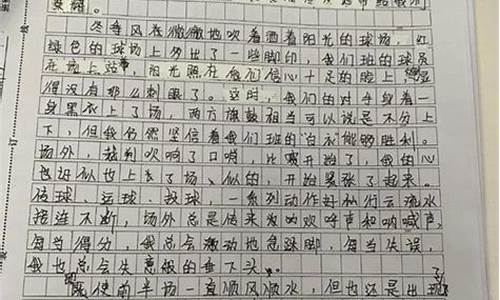 冬季风在微微地吹着洒着阳光的球场,红
绿色的球场上多出了一些脚印,我们班的球员
在场上站,阳光照在他们信心十足的脸上
得没有那么刺眼了。这时,我们的对手身着一
身黑衣上了场,两方旗鼓相当可以说是不分上
下,但我仍然坚信着我们班的"白衣能够胜利。
场外,裁判吹响了口哨,比赛开始了,我的心
也近似也上了场、似的,开始紧张了起来。
传球、运球、投球,一系列动作好似行云流水
接连不断,场外总是传来为如欢呼声和呐喊声,
每当得分,我总会激动地急跺脚,每当失误,
我也总会失意般的垂下头。
既使前半场一直顺风顺水,但也还是出现了